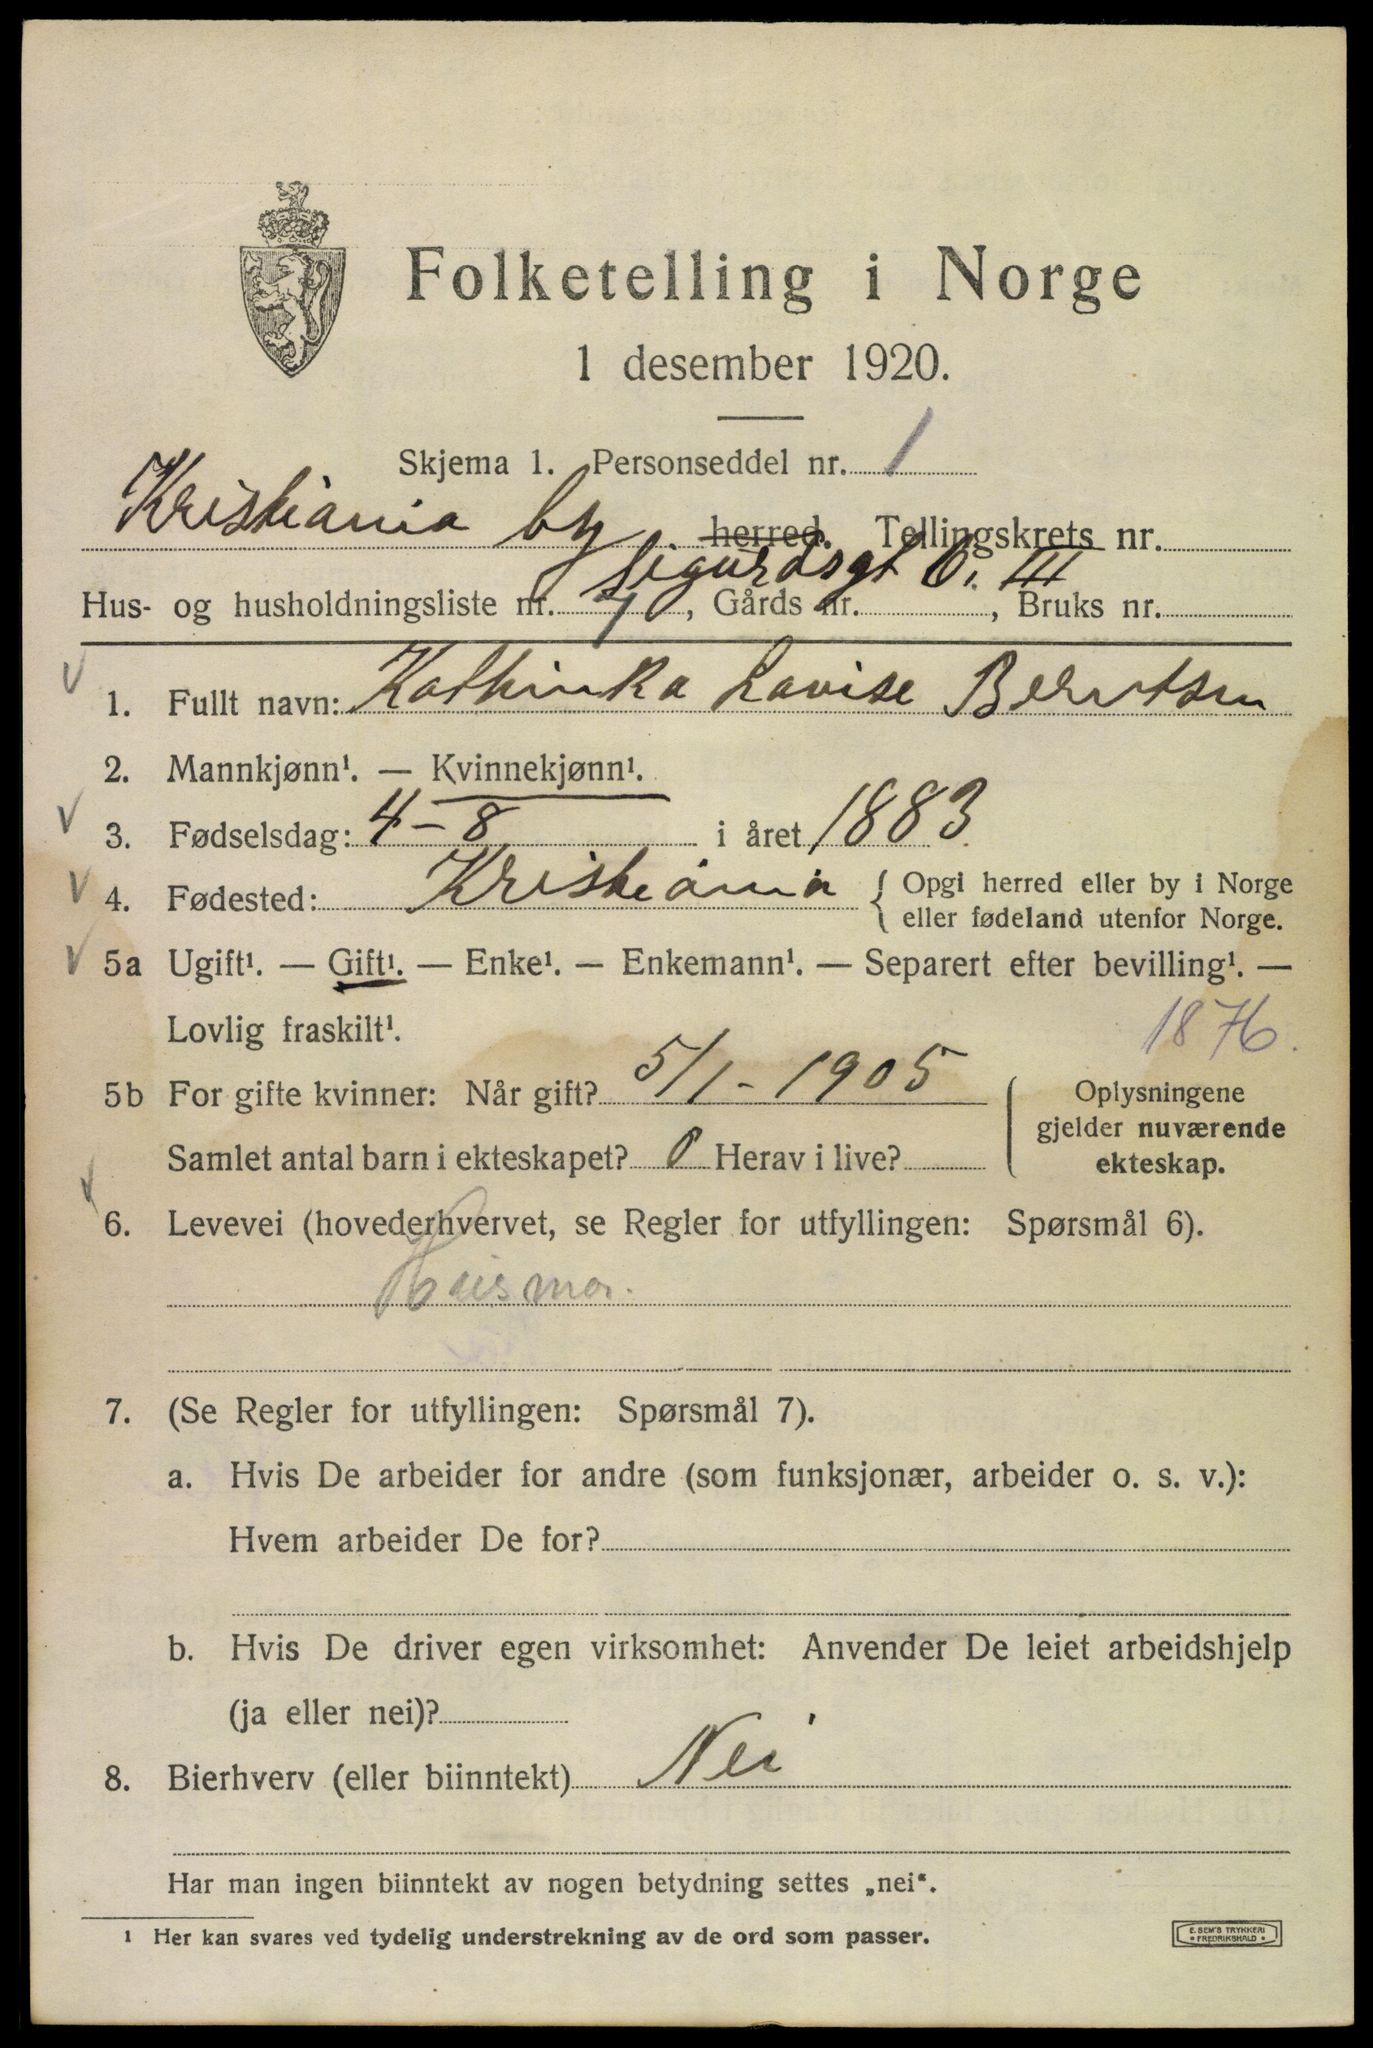 Folketelling i Norge
1 desember 1920.
Skjema 1. Personseddel nr. 1
Kristiania by herred. Tellingskrets nr.
Sigurdsgt 6. III
Hus- og husholdningsliste nr. 7, Gårds nr. , Bruks nr.
1. Fullt navn: Kathinka Lovise Berntsen
2. Mannkjønn¹. — Kvinnekjønn¹.
3. Fødselsdag: 4-8 i året 1883
4. Fødested: Kristiania { Opgi herred eller by i Norge
eller fødeland utenfor Norge.
5a Ugift¹. — Gift¹. — Enke¹. — Enkemann¹. — Separert efter bevilling¹. —
Lovlig fraskilt¹.
1876.
5b For gifte kvinner: Når gift? 5/1-1905
Samlet antal barn i ekteskapet? 0 Herav i live?
Oplysningene
gjelder nuværende
ekteskap.
6. Levevei (hovederhvervet, se Regler for utfyllingen: Spørsmål 6).
Husmor.
7. (Se Regler for utfyllingen: Spørsmål 7).
a. Hvis De arbeider for andre (som funksjonær, arbeider o. s. v.):
Hvem arbeider De for?
b. Hvis De driver egen virksomhet: Anvender De leiet arbeidshjelp
(ja eller nei)?
8. Bierhverv (eller biinntekt) Nei
Har man ingen biinntekt av nogen betydning settes „nei".
¹ Her kan svares ved tydelig understrekning av de ord som passer.
E. SEM'S TRYKKERI
• FREDRIKSHALD •